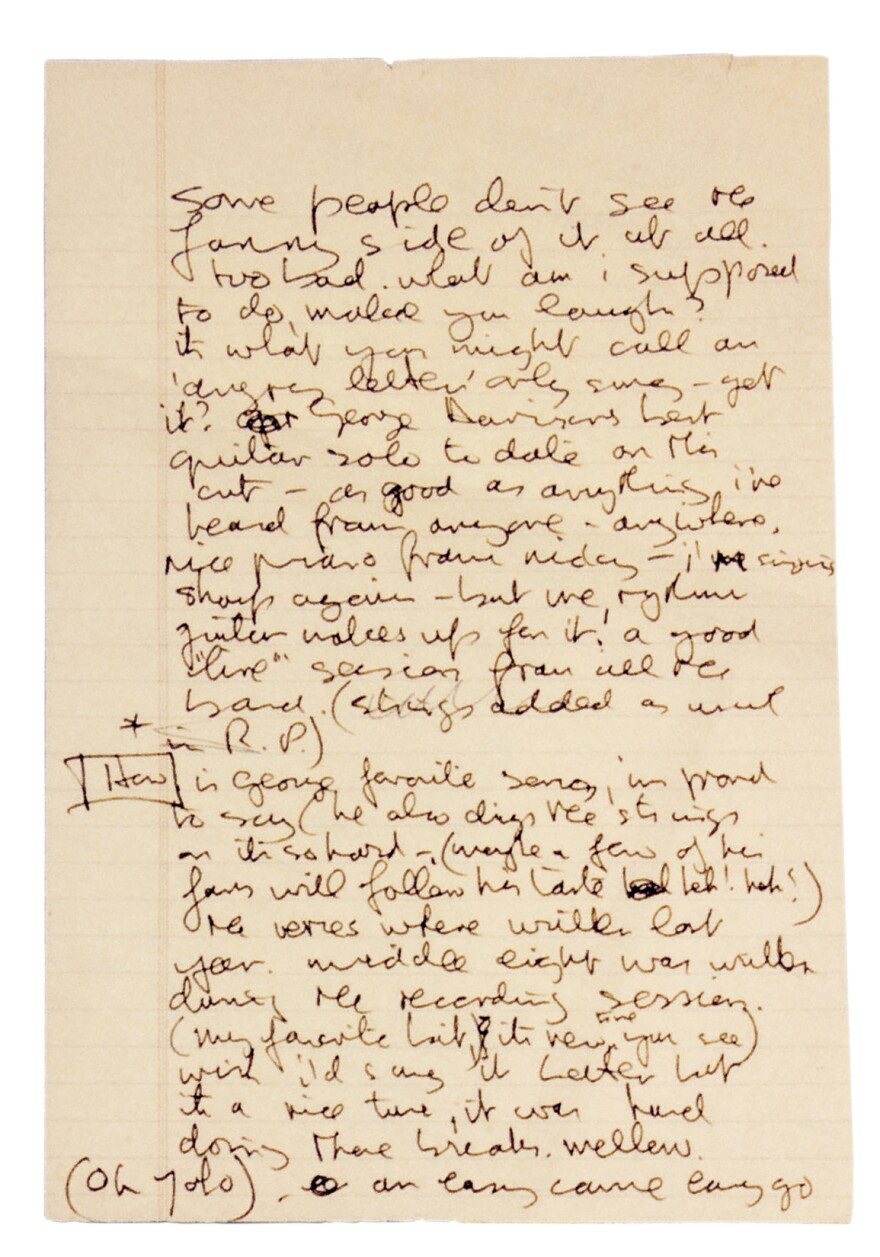 some people don't see the
funny side of it at all.
too bad. what am i supposed
to do, make you laugh?
its what you might call an
'angry letter' only sung - get
it? George Harrisons best
guitar solo to date on this
cut - as good as anything i've
heard from anyone - anywhere.
nice piano from nicky - i'm singing
sharp again - but me rythm
guitar makes up for it! a good
"live" session from all the
band. (strings added as usual
* in R.P.)
How is George favorite song, i'm proud
to say (he also digs the strings
on its so hard - (maybe a few of his
fans will follow his taste heh! heh!)
the verses where written last
year. middle eight was written
during the recording session.
(my favorite bit, its new you see)
wish i'd sang it better but
its a nice tune, it was hard
doing those breaks. mellow.
(Oh Yoko). an easy come easy go